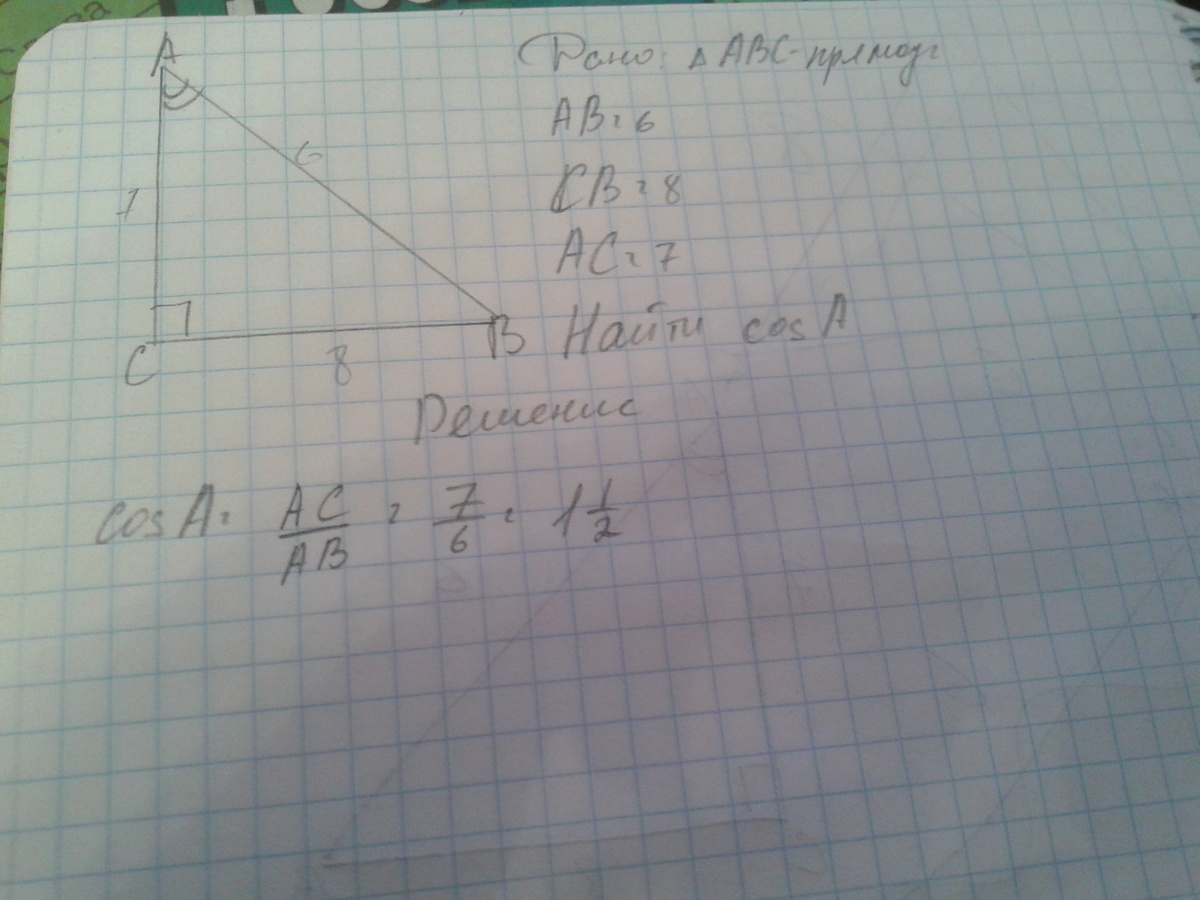 A
Дано: △ABC-прямоуг
AB=6
6
CB=8
7
AC=7
C
8
B
Найти cos A
Решение
cos A = AC/AB = 7/6 = 1 1/2